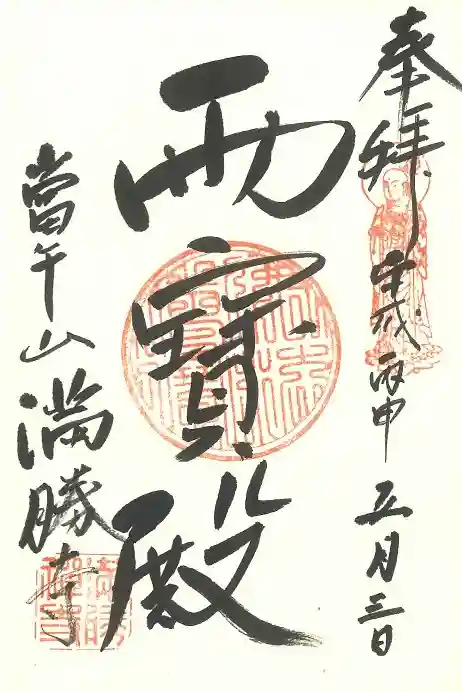 奉拝 平成丙申 五月三日
寶殿
當午山 満勝寺